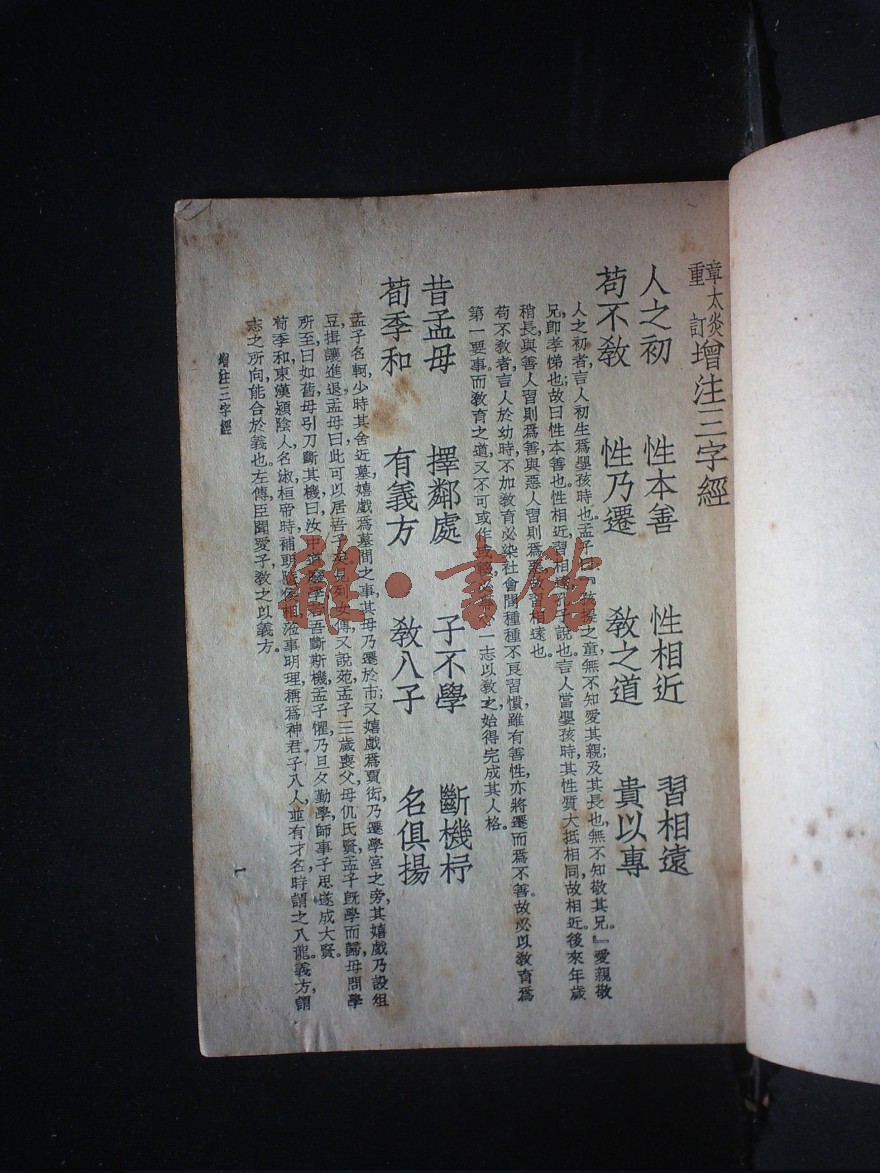 章太炎重訂增注三字經
人之初　性本善　性相近　習相遠
苟不敎　性乃遷　敎之道　貴以專
人之初者，言人初生爲嬰孩時也。孟子曰『孩提之童，無不知愛其親；及其長也，無不知敬其兄。』愛親敬
兄，卽孝悌也；故曰性本善也。性相近，習相遠，孔子說也。言人當嬰孩時，其性質大抵相同，故相近。後來年歲
稍長，與善人習則爲善，與惡人習則爲惡，故曰相遠也。
苟不敎者，言人於幼時，不加敎育，必染社會間種種不良習慣，雖有善性，亦將遷而爲不善。故必以敎育爲
第一要事，而敎育之道，又不可或作或輟，必一志以敎之，始得完成其人格。
昔孟母　擇鄰處　子不學　斷機杼
荀季和　有義方　敎八子　名俱揚
孟子名軻，少時其舍近墓，嬉戲爲墓間之事，其母乃遷於市；又嬉戲爲賈衒，乃遷學宮之旁，其嬉戲乃設俎
豆，揖讓進退。孟母曰：此可以居吾子矣。見列女傳。又說苑孟子三歲喪父，母仉氏賢，孟子旣學而歸，母問學
所至，曰如舊，母引刀斷其機曰，汝中道廢學，若吾斷斯機，孟子懼，乃旦夕勤學，師事子思，遂成大賢。
荀季和，東漢潁陰人，名淑，桓帝時補朗陵侯相，涖事明理，稱爲神君，子八人，並有才名，時謂之八龍。義方，謂
志之所向，能合於義也。左傳，臣聞愛子，敎之以義方。
增注三字經
一
雜·書館